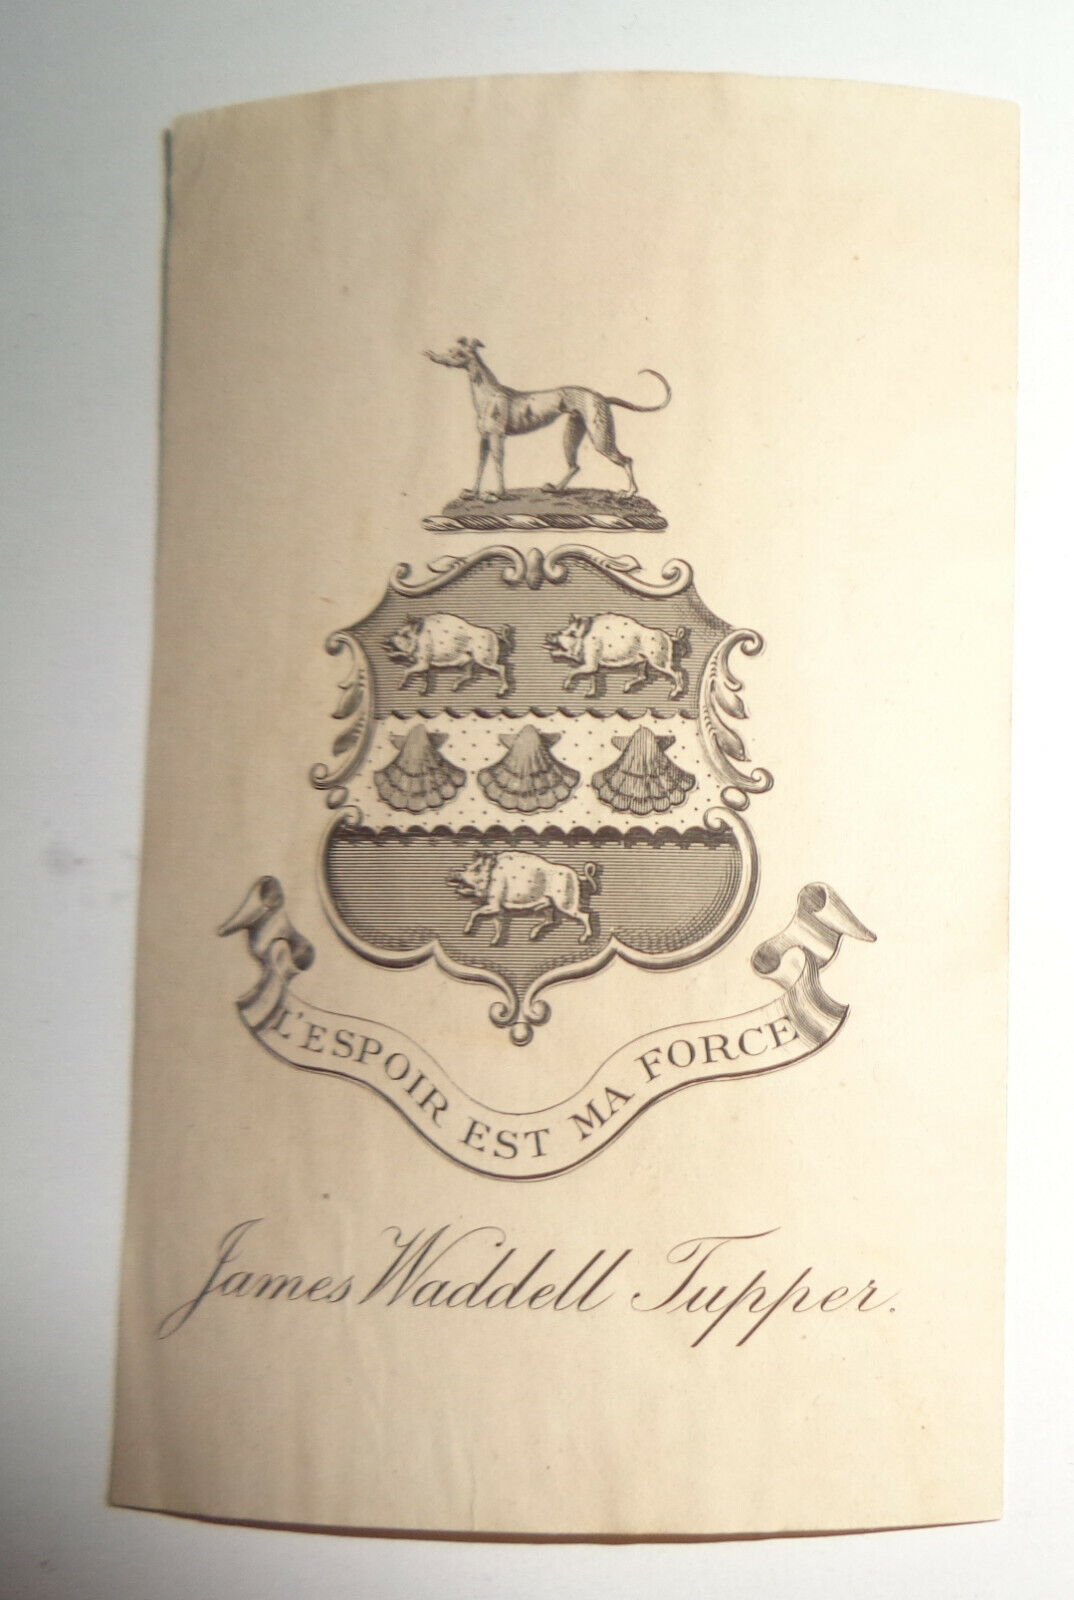 L'ESPOIR EST MA FORCE
James Waddell Tupper.